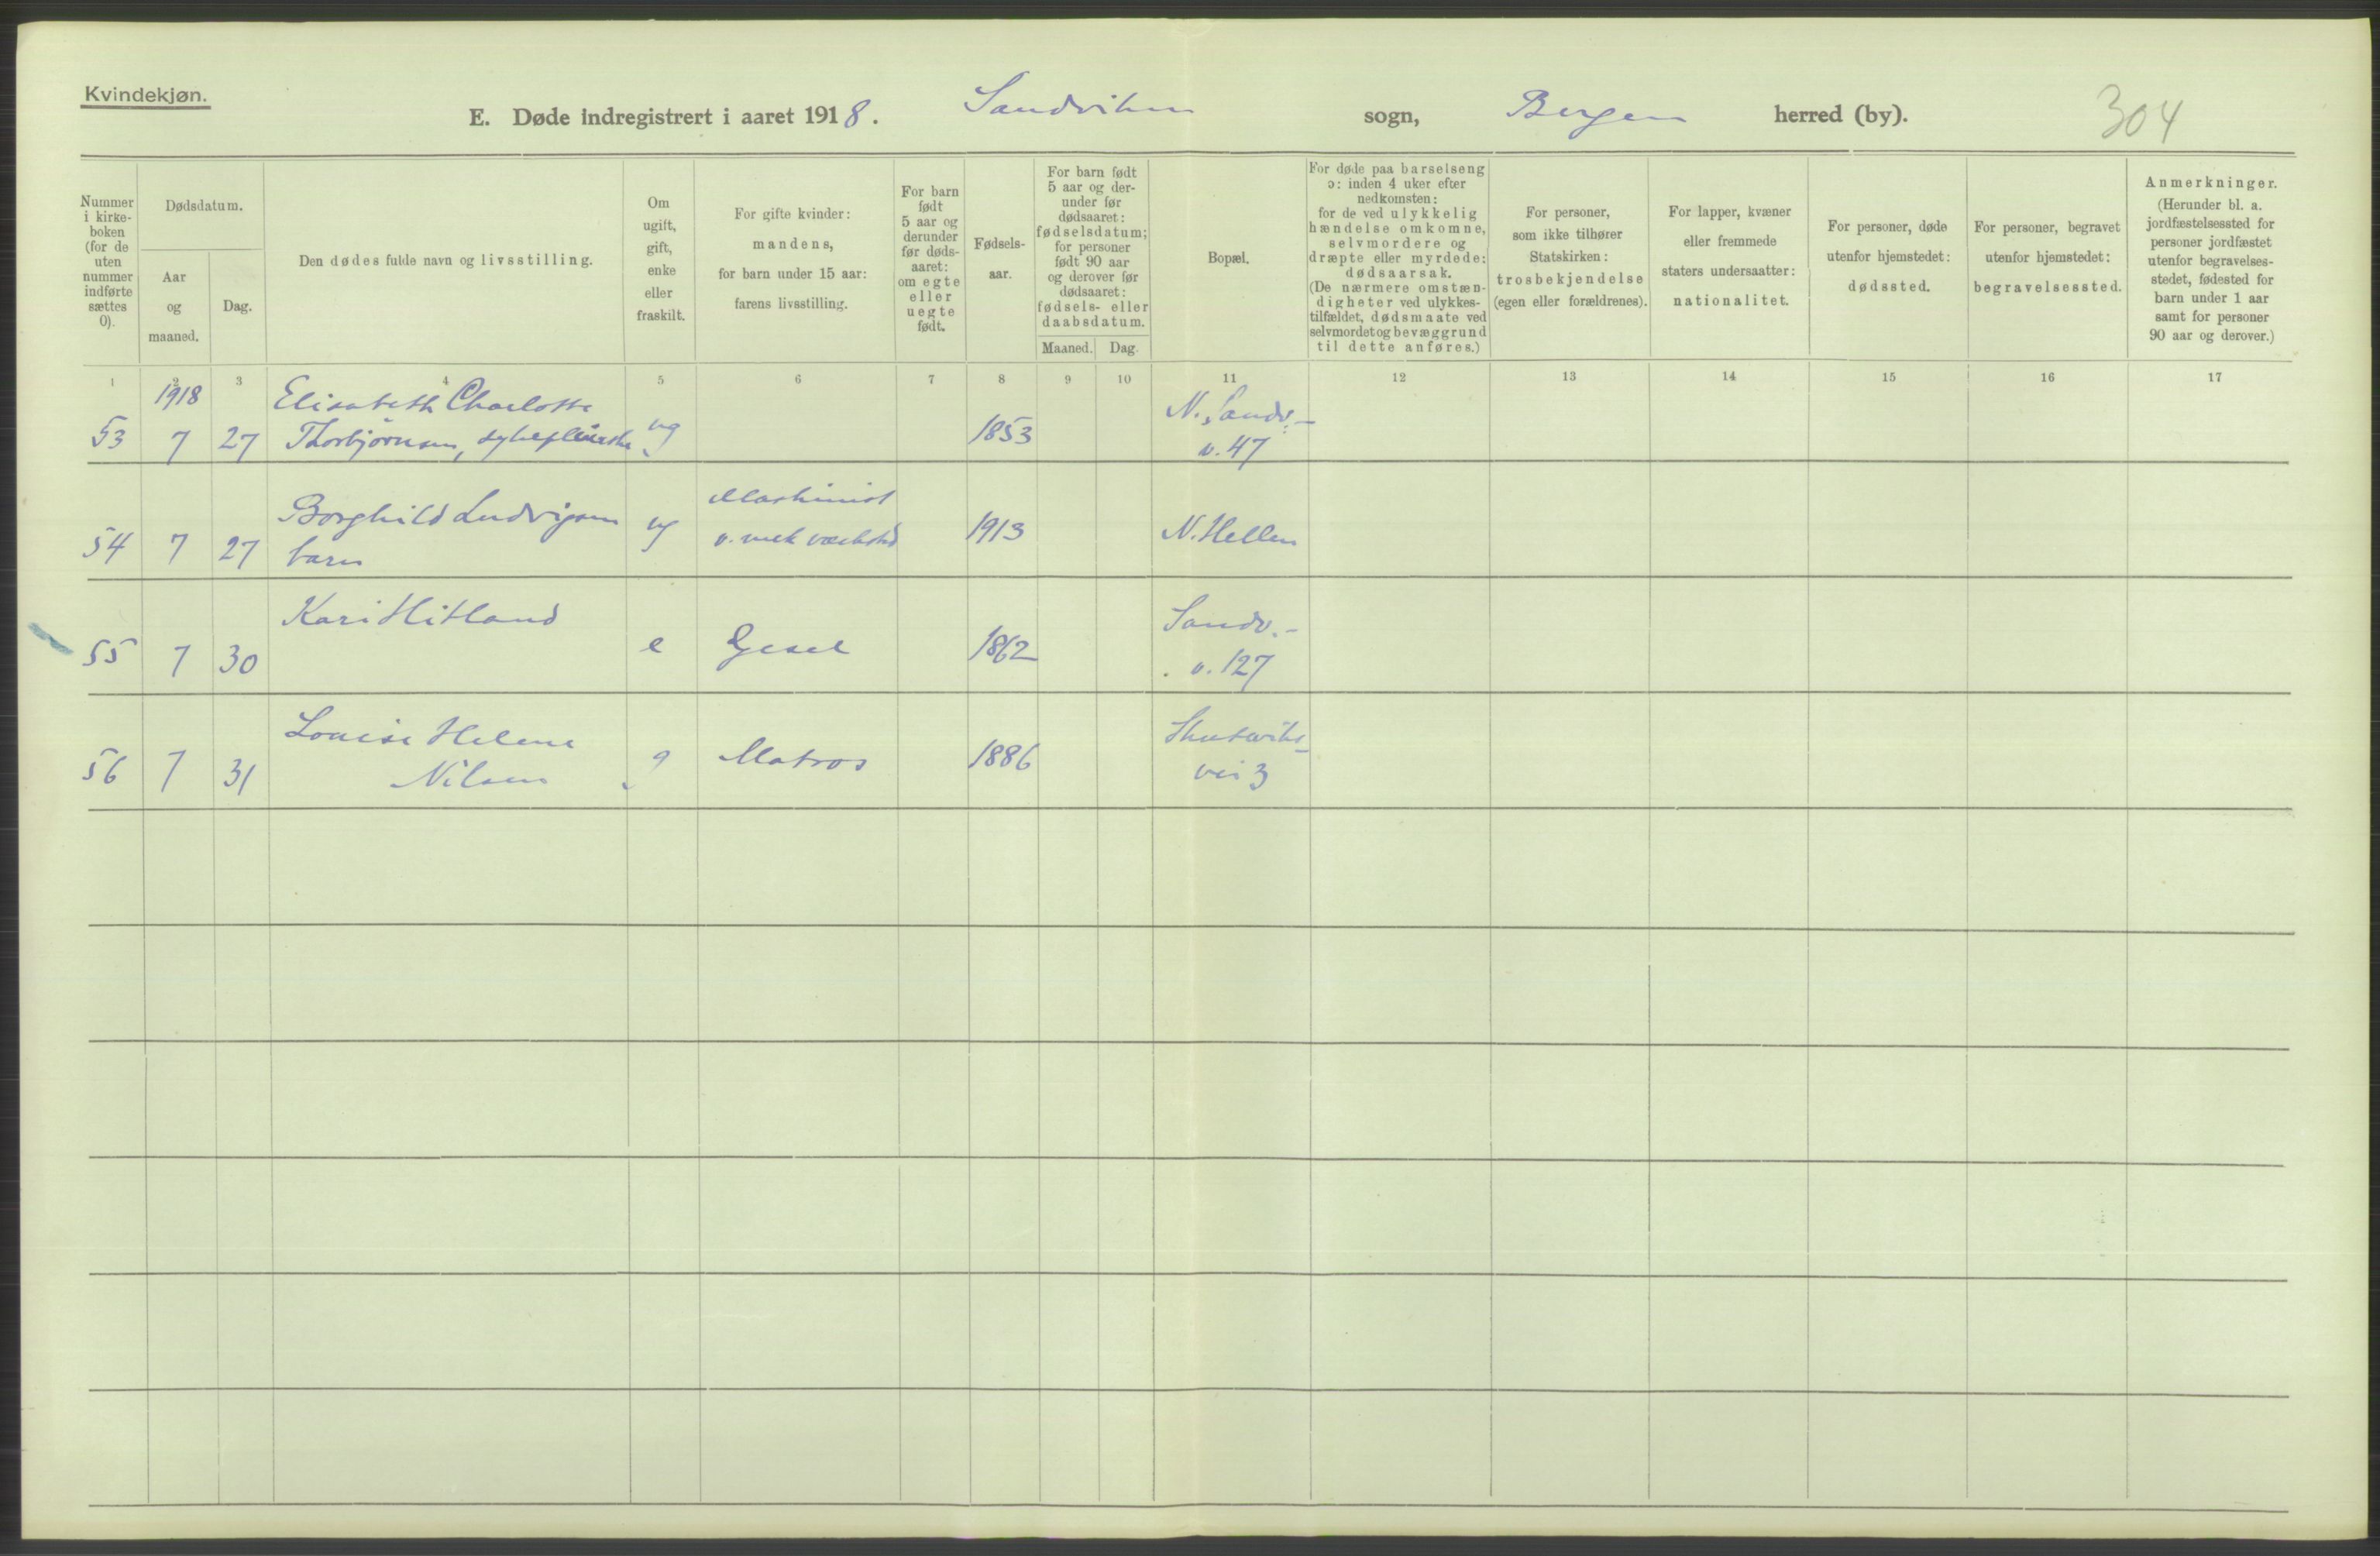 Kvindekjøn.
E. Døde indregistrert i aaret 1918. Sandviken sogn, Bergen herred (by). 304
Nummer i kirke-boken (for de uten nummer indførte sættes 0).
Dødsdatum.
Aar og maaned.
Dag.
Den dødes fulde navn og livsstilling.
Om ugift, gift, enke eller fraskilt.
For gifte kvinder: mandens, for barn under 15 aar: farens livsstilling.
For barn født 5 aar og derunder før døds-aaret: om egte eller uegte født.
Fødsels-aar.
For barn født 5 aar og der-under før dødsaaret: fødselsdatum; for personer født 90 aar og derover før dødsaaret: fødsels- eller daabsdatum.
Maaned. Dag.
Bopæl.
For døde paa barselseng ɔ: inden 4 uker efter nedkomsten: for de ved ulykkelig hændelse omkomne, selvmordere og dræpte eller myrdede: dødsaarsak. (De nærmere omstæn-digheter ved ulykkes-tilfældet, dødsmaate ved selvmordet og bevæggrund til dette anføres.)
For personer, som ikke tilhører Statskirken: trosbekjendelse (egen eller forældrenes).
For lapper, kvæner eller fremmede staters undersaatter: nationalitet.
For personer, døde utenfor hjemstedet: dødssted.
For personer, begravet utenfor hjemstedet: begravelsessted.
Anmerkninger. (Herunder bl. a. jordfæstelsessted for personer jordfæstet utenfor begravelses-stedet, fødested for barn under 1 aar samt for personer 90 aar og derover.)
1 2 3 4 5 6 7 8 9 10 11 12 13 14 15 16 17
1918 Elisabeth Charlotte N. Sandv.-
53 7 27 Thorbjørnsen, sykepleierske ug 1853 v. 47
Borghild Ludvigsen Maskinist
54 7 27 barn ug v. mek værksted 1913 N. Hellen
Kari Hitland Sandv.-
55 7 30 e Gjesel 1862 v. 127
Louise Helene Skuteviks-
56 7 31 Nilsen g Matros 1886 vei 3